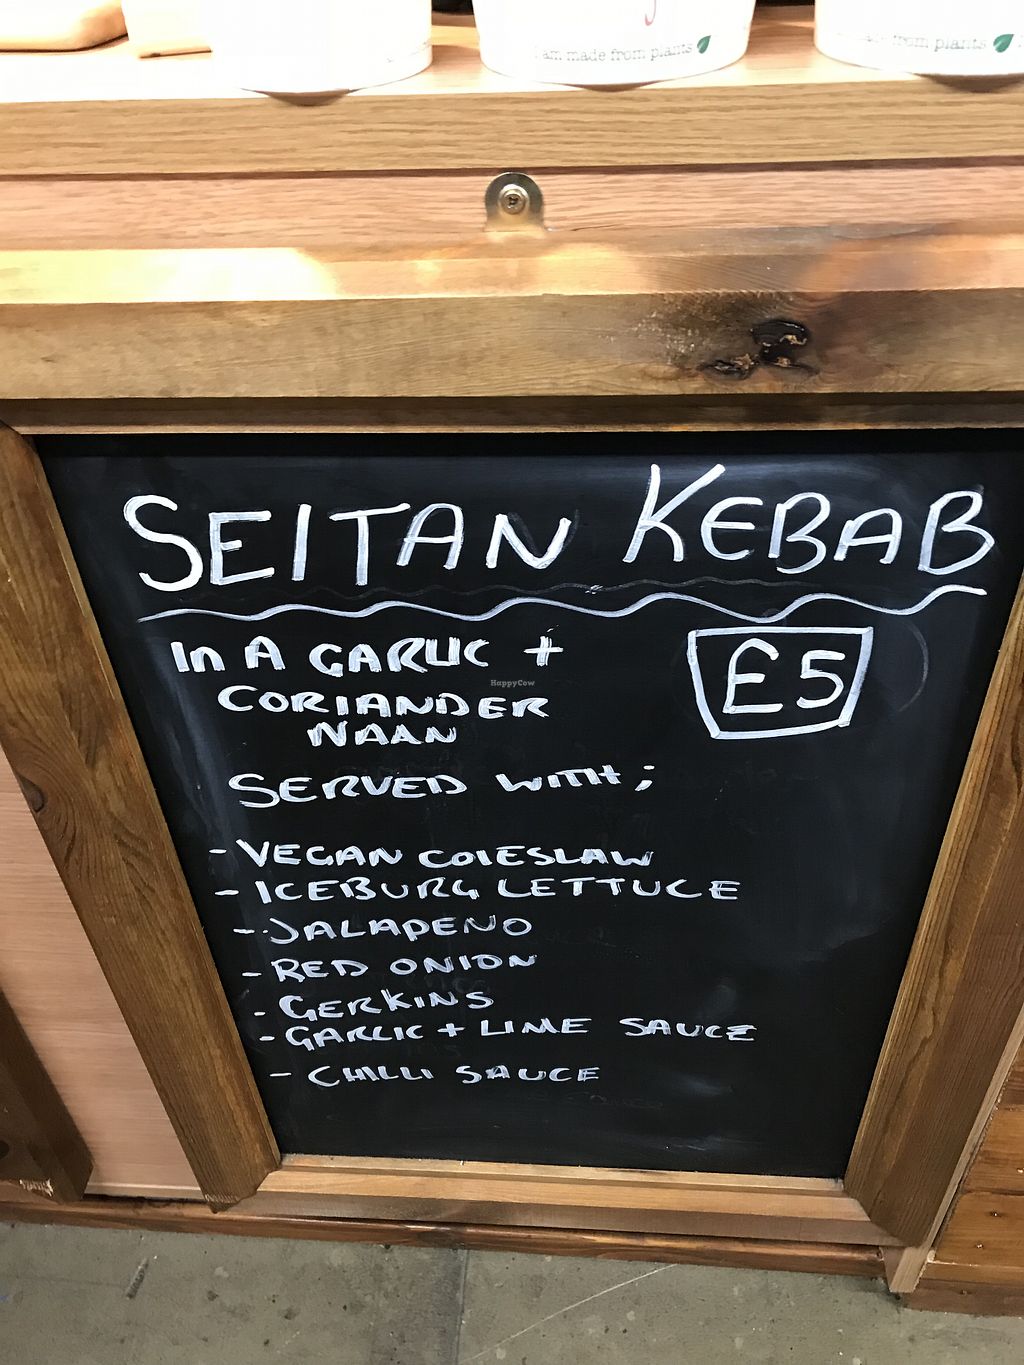 I am made from plants
from plants
SEITAN KEBAB
In A GARLIC +
£5
CORIANDER
NAAN
HappyCow
SERVED WITH;
- VEGAN COLESLAW
- ICEBURG LETTUCE
- JALAPENO
- RED ONION
- GERKINS
- GARLIC + LIME SAUCE
- CHILLI SAUCE